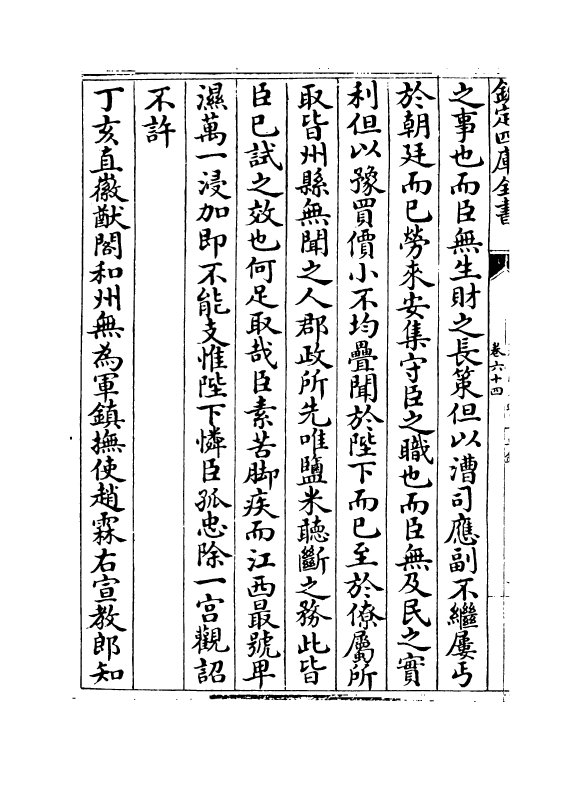 欽定四庫全書
卷六十四
之事也而臣無生財之長策但以漕司應副不繼屢丐
於朝廷而已勞來安集守臣之職也而臣無及民之實
利但以豫買價小不均疊聞於陛下而已至於僚屬所
取皆州縣無聞之人郡政所先唯鹽米聽斷之務此皆
臣已試之效也何足取哉臣素苦脚疾而江西最號卑
濕萬一浸加即不能支惟陛下憐臣孤忠除一宫觀詔
不許
丁亥直徽猷閣和州無為軍鎮撫使趙霖右宣教郎知